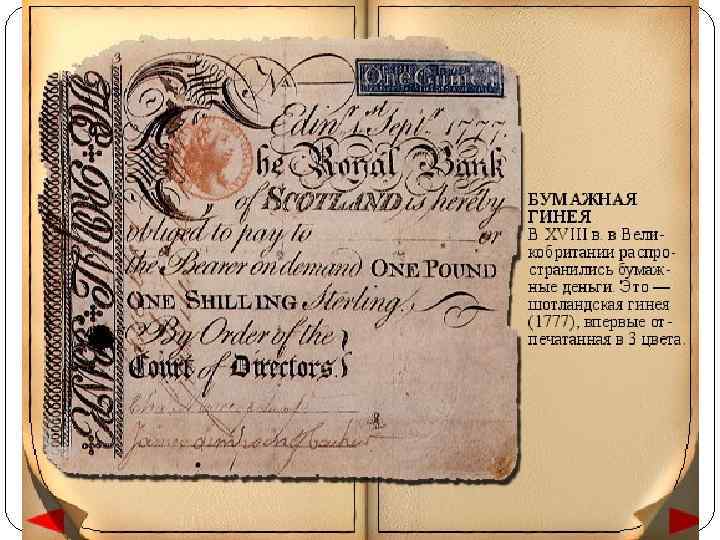 No
One Guinea
Edinr. 1st Septr. 1777.
The Royal Bank
of SCOTLAND is hereby
obliged to pay to or
the Bearer on demand ONE POUND
ONE SHILLING Sterling.
By Order of the
Court of Directors
БУМАЖНАЯ
ГИНЕЯ
В XVIII в. в Вели-
кобритании распро-
странились бумаж-
ные деньги. Это —
шотландская гинея
(1777), впервые от-
печатанная в 3 цвета.